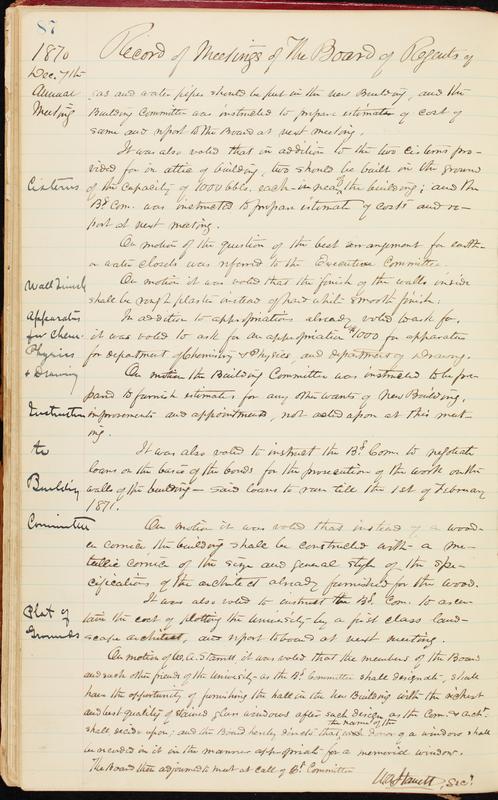 87
1870 Record of Meetings of The Board of Regents of
Dec. 7th
Annual
Meeting
gas and water pipes should be put in the new Building, and the
Building Committee was instructed to prepare estimates of cost of
same and report to the Board at next meeting.
It was also voted that in addition to the two cisterns pro-
vided for in attic of building, two should be built in the ground
Cisterns
of the capacity of 1000 bbls. each in near the building; and the
Bd. Com. was instructed to prepare estimate of costs and re-
port at next meeting.
On motion of the question of the best arrangement for earth
or water closets was referred to the Executive Committee.
Wall Finish
On motion it was voted that the finish of the walls inside
shall be rough plaster instead of hard white smooth finish.
Apparatus
for Chem.
Physics
& Drawing
In addition to appropriations already voted to ask for,
it was voted to ask for an appropriation $1000 for apparatus
for department of Chemistry & Physics, and department of Drawing.
On motion the Building Committee was instructed to be pre-
pared to furnish estimates for any other wants of New Building,
Instruction
improvements and appointments, not acted upon at this meet-
ing.
to
Building
Committee
It was also voted to instruct the Bd. Com. to negotiate
loans on the basis of the bonds for the prosecution of the work on the
walls of the building — said loans to run till the 1st of February
1871.
On motion it was voted that instead of a wood-
en cornice the building shall be constructed with a me-
tallic cornice of the size and general style of the spe-
cifications of the architect already furnished for the wood.
Plat of
Grounds
It was also voted to instruct the Bd. Com. to ascer-
tain the cost of plotting the University by a first class land-
scape architect, and report to board at next meeting.
On motion of W. A. Starrett it was voted that the members of the Board
and such other friends of the University as the Bd. Committee shall designate, shall
have the opportunity of furnishing the hall in the New Building with the richest
and best quality of stained glass windows after such design as the Com. & acht.
shall decide upon; and the Board hereby directs that the name of the donor of a window shall
be inscribed in it in the manner appropriate for a memorial window.
The Board then adjourned to meet at call of Ex. Committee
W A Starrett, Sec.